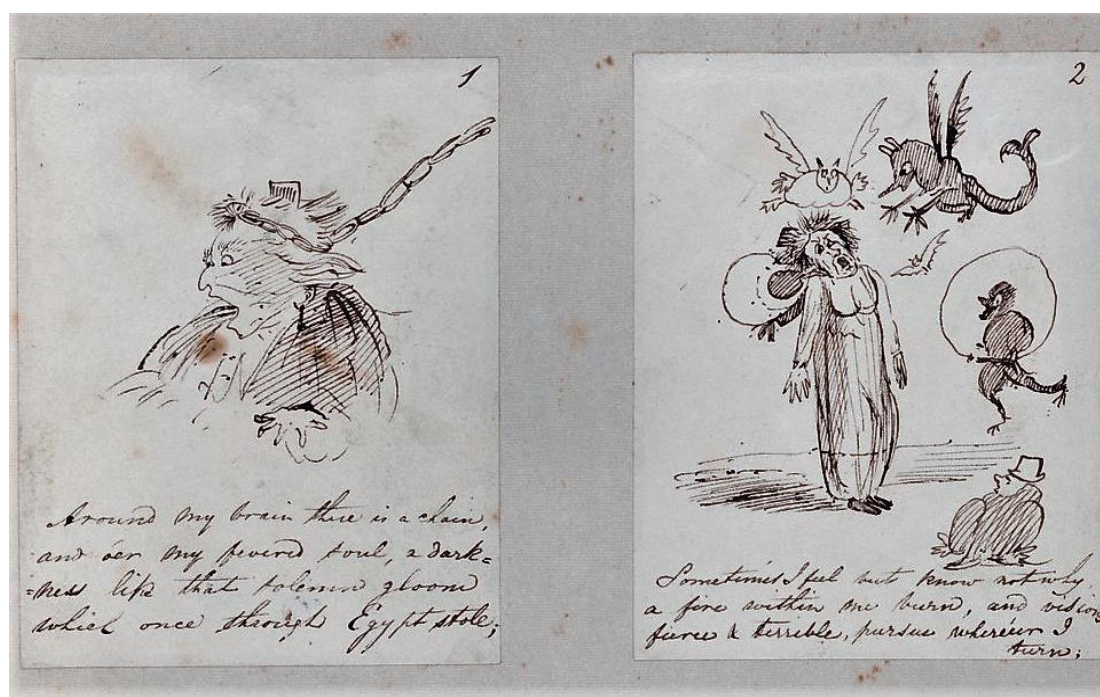 1
Around my brain there is a chain,
and o'er my fevered soul, a dark=
=ness like that solemn gloom
which once through Egypt stole;
2
Sometimes I feel but know not why,
a fire within me burn, and visions
fierce & terrible, pursue where'er I
turn;